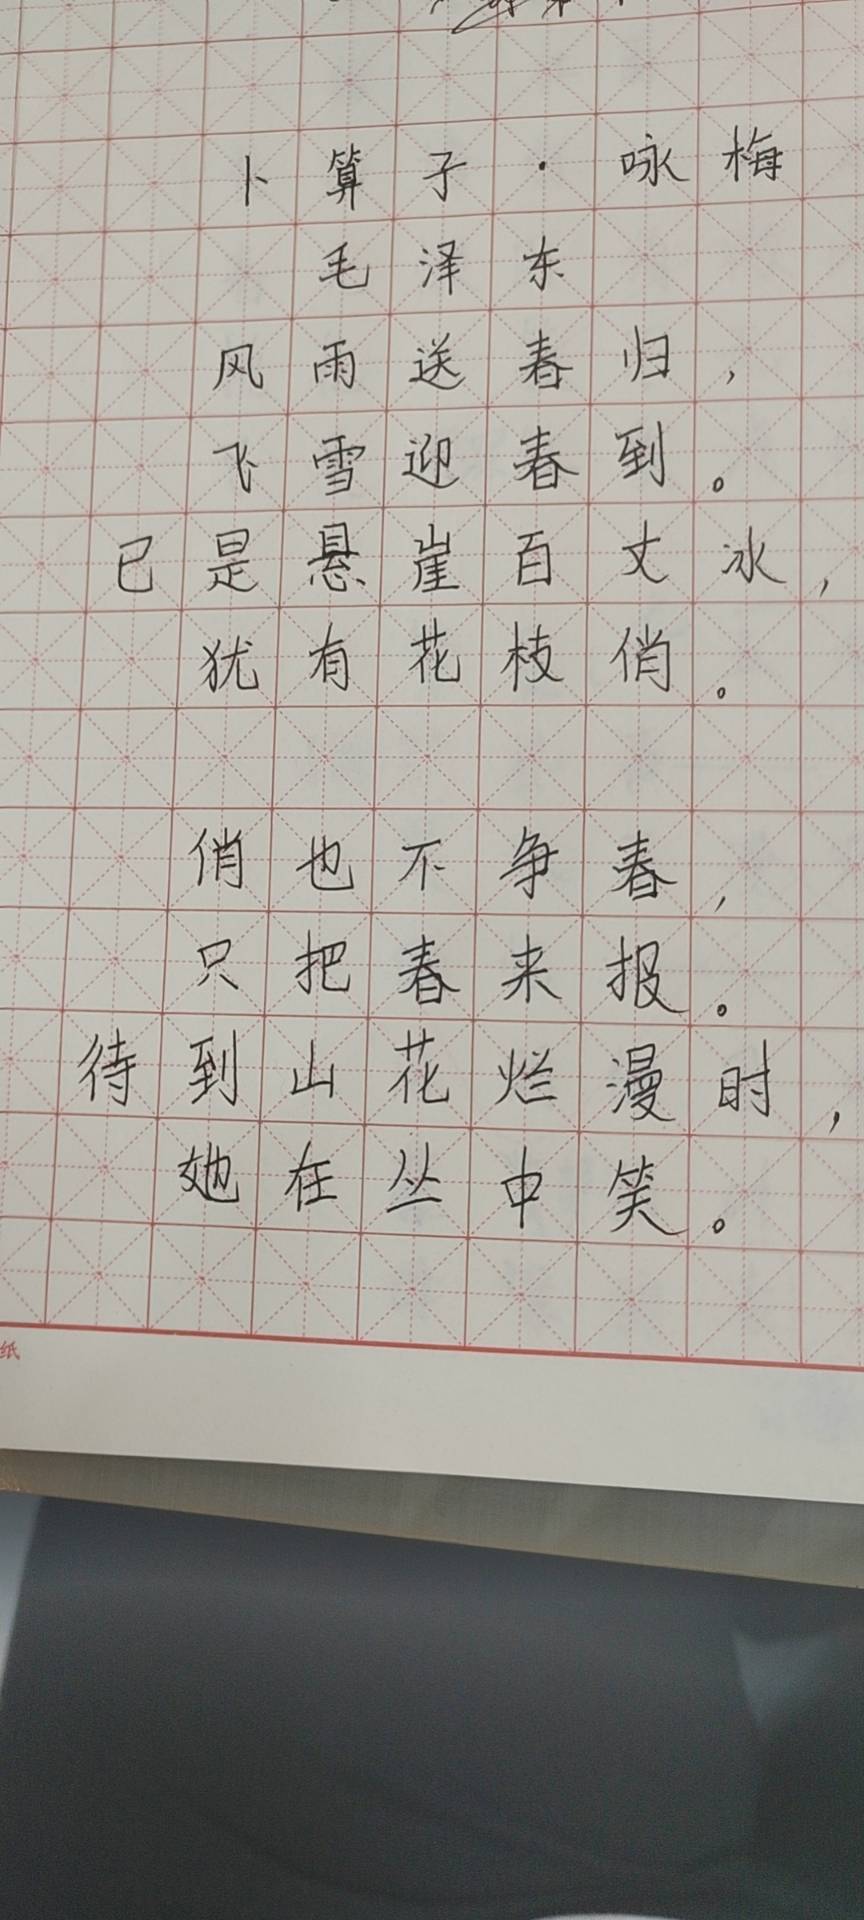 卜算子·咏梅
毛泽东
风雨送春归，
飞雪迎春到。
已是悬崖百丈冰，
犹有花枝俏。
俏也不争春，
只把春来报。
待到山花烂漫时，
她在丛中笑。
纸